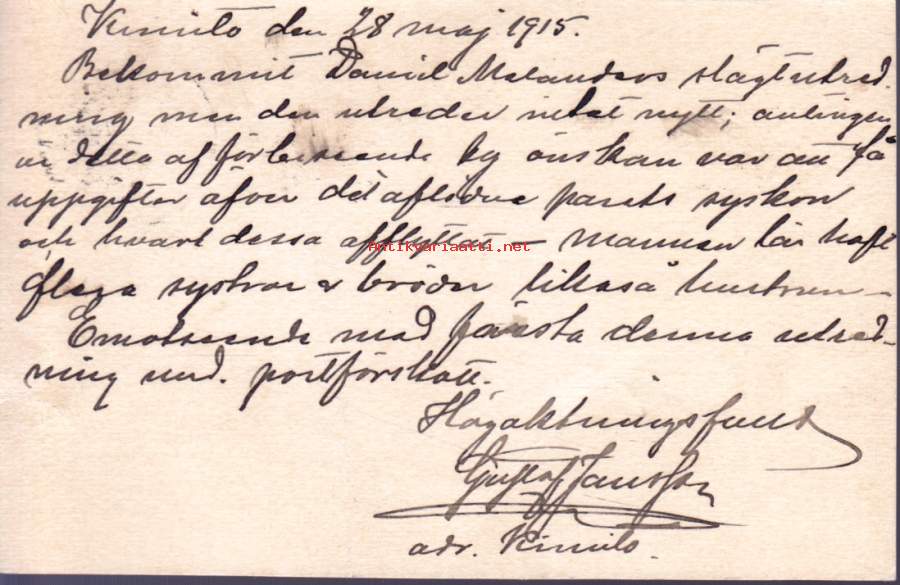 Kimito den 28 maj 1915.
Bekommit David Melanders slägtutred-
ning men den utreder intet nytt; antingen
är detta af förbiseende ty önskan var att få
uppgifter äfven det aflidne parets syskon
och hvart dessa afflyttat – mannen lär haft
flera systrar o bröder likaså hustrun –
Emotseende med första denna utred-
ning und. postförskott.
Högaktningsfullt
Gustaf Jansson
adr. Kimito.
Antikvariaatti.net